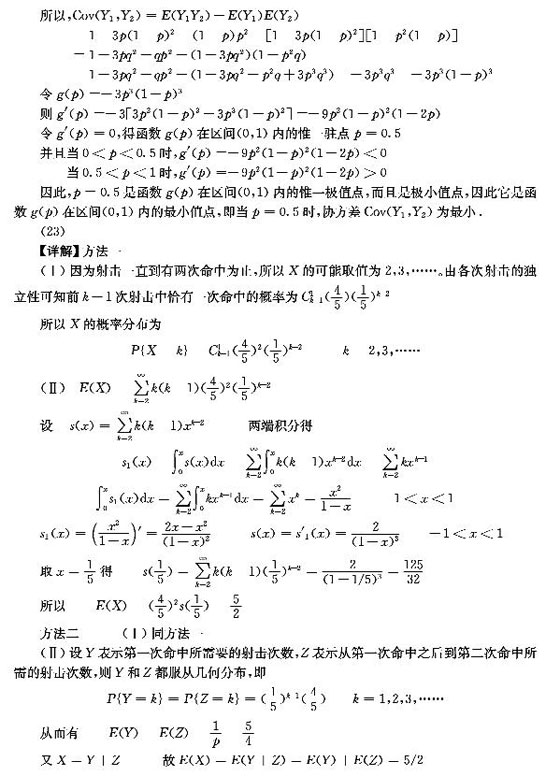 所以,Cov(Y₁,Y₂) = E(Y₁Y₂) − E(Y₁)E(Y₂)
1 3p(1 p)² (1 p)p² [1 3p(1 p)²][1 p²(1 p)]
− 1 − 3pq² − qp² − (1 − 3pq²)(1 − p²q)
1 − 3pq² − qp² − (1 − 3pq² − p²q + 3p³q³) − 3p³q³ − 3p³(1 − p)³
令 g(p) − − 3p³(1 − p)³
则 g′(p) − − 3[3p²(1 − p)³ − 3p³(1 − p)²] − − 9p²(1 − p)²(1 − 2p)
令 g′(p) = 0,得函数 g(p) 在区间(0,1) 内的惟 驻点 p = 0.5
并且当 0 < p < 0.5 时,g′(p) = − 9p²(1 − p)²(1 − 2p) < 0
当 0.5 < p < 1 时,g′(p) = − 9p²(1 − p)²(1 − 2p) > 0
因此,p − 0.5 是函数 g(p) 在区间(0,1) 内的惟一极值点,而且是极小值点,因此它是函
数 g(p) 在区间(0,1) 内的最小值点,即当 p = 0.5 时,协方差 Cov(Y₁,Y₂) 为最小.
(23)
【详解】方法
(Ⅰ) 因为射击 直到有两次命中为止,所以 X 的可能取值为 2,3,……。由各次射击的独
立性可知前 k − 1 次射击中恰有 次命中的概率为 C¹ₖ₋₁(4/5)(1/5)ᵏ⁻²
所以 X 的概率分布为
P{X k} C¹ₖ₋₁(4/5)²(1/5)ᵏ⁻² k 2,3,……
(Ⅱ) E(X) ∑_{k−2}^{∞} k(k 1)(4/5)²(1/5)ᵏ⁻²
设 s(x) = ∑_{k−2}^{∞} k(k 1)xᵏ⁻² 两端积分得
s₁(x) ∫₀ˣ s(x)dx ∑_{k−2}^{∞} ∫₀ˣ k(k 1)xᵏ⁻²dx ∑_{k−2}^{∞} kxᵏ⁻¹
∫₀ˣ s₁(x)dx − ∑_{k−2}^{∞} ∫₀ˣ kxᵏ⁻¹dx − ∑_{k−2}^{∞} xᵏ − x²/(1 − x) 1 < x < 1
s₁(x) = (x²/(1 − x))′ = (2x − x²)/(1 − x)² s(x) = s′₁(x) = 2/(1 − x)³ − 1 < x < 1
取 x − 1/5 得 s(1/5) − ∑_{k−2}^{∞} k(k 1)(1/5)ᵏ⁻² − 2/(1 − 1/5)³ − 125/32
所以 E(X) (4/5)²s(1/5) 5/2
方法二 (Ⅰ) 同方法
(Ⅱ) 设 Y 表示第一次命中所需要的射击次数,Z 表示从第一次命中之后到第二次命中所
需的射击次数,则 Y 和 Z 都服从几何分布,即
P{Y = k} = P{Z = k} = (1/5)ᵏ⁻¹(4/5) k = 1,2,3,……
从而有 E(Y) E(Z) 1/p 5/4
又 X − Y | Z 故 E(X) − E(Y | Z) − E(Y) | E(Z) − 5/2